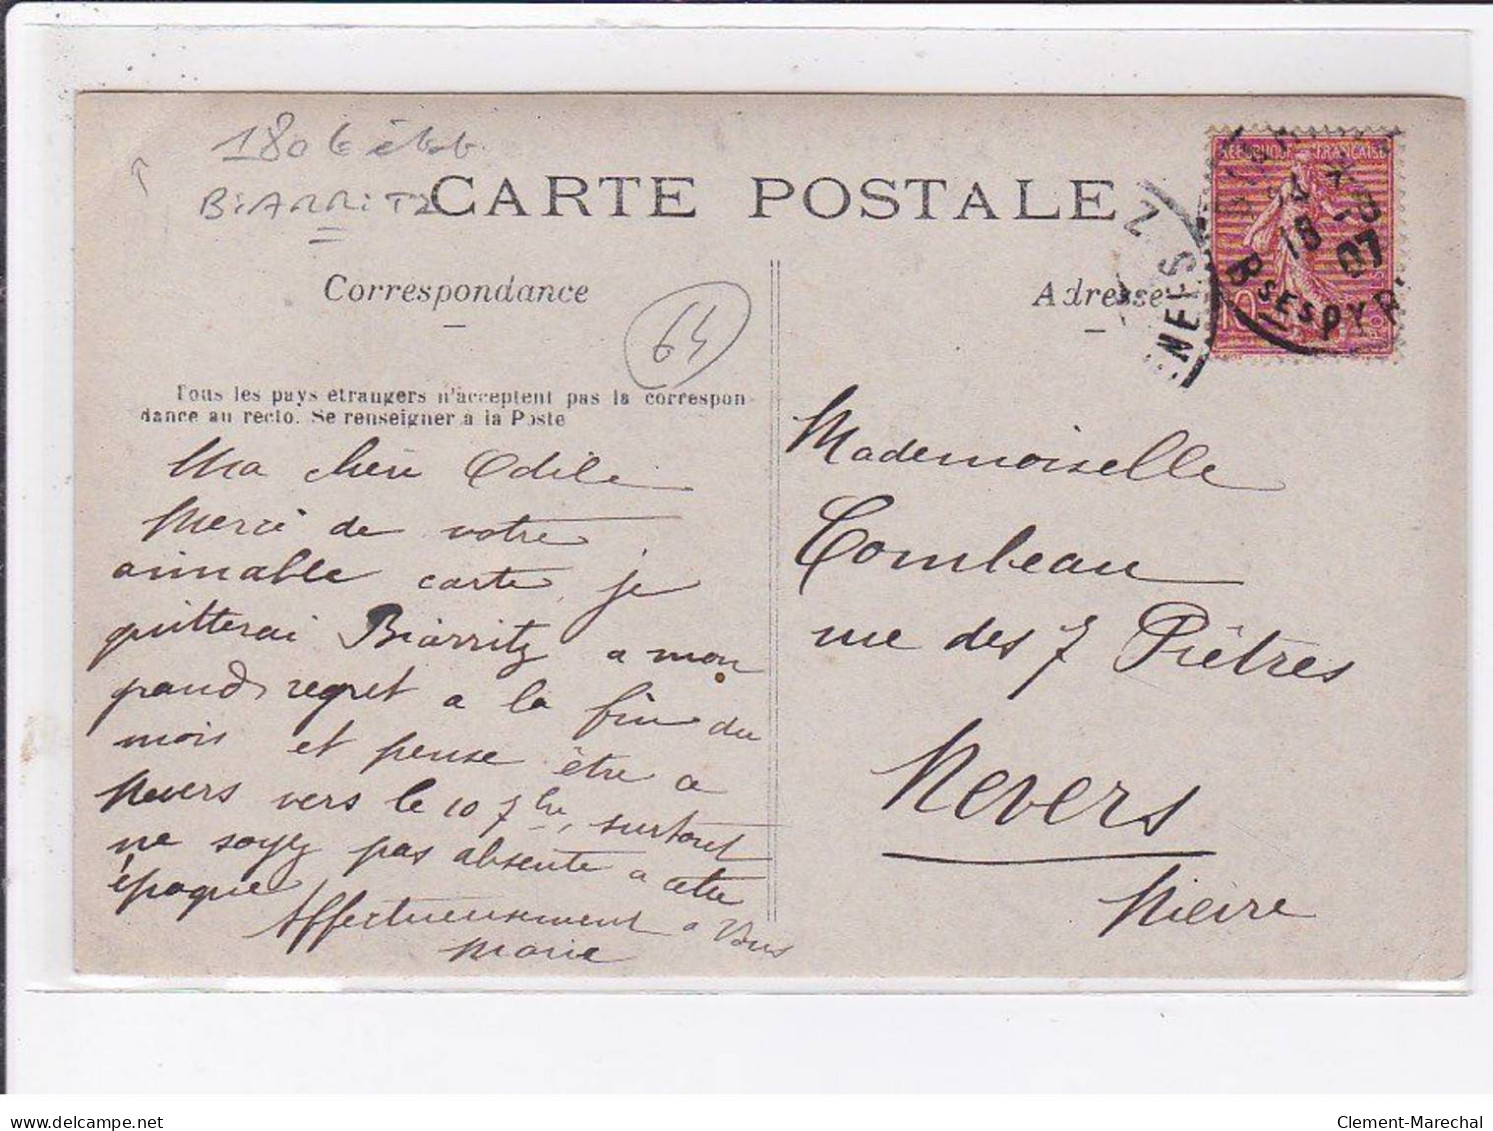 180 b
BiARRiTZ
CARTE POSTALE
Correspondance
64
Adresse
REPUBLIQUE FRANÇAISE
10
18 - 8
07
BSES PYR
Tous les pays étrangers n'acceptent pas la correspon
dance au recto. Se renseigner a la Poste
Ma chère Odile
Merci de votre
aimable carte, je
quitterai Biarritz a mon
grand regret a la fin du
mois et pense être a
Nevers vers le 10 7bre, surtout
ne soyez pas absente a cette
époque
Affectueusement a Vous
Marie
Mademoiselle
Combeau
rue des 7 Piètres
Nevers
Nièvre
delcampe.net
Clement-Marechal